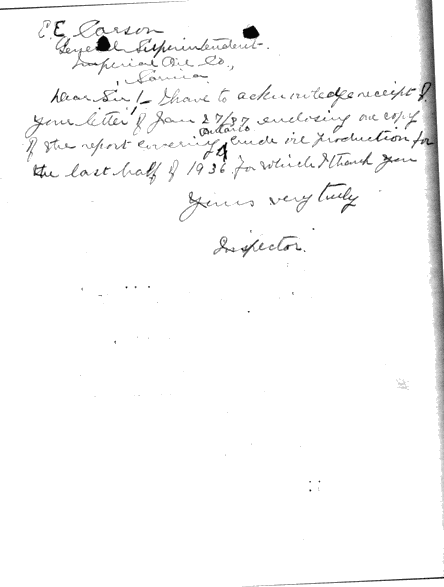 E E Carson
General Superintendent.
Imperial Oil Co.,
Sarnia.
Dear Sir:— I have to acknowledge receipt of
your letter of Jan 27/37 enclosing one copy
Ontario
of the report covering crude oil production for
the last half of 1936 for which I thank you
Yours very truly
Inspector.